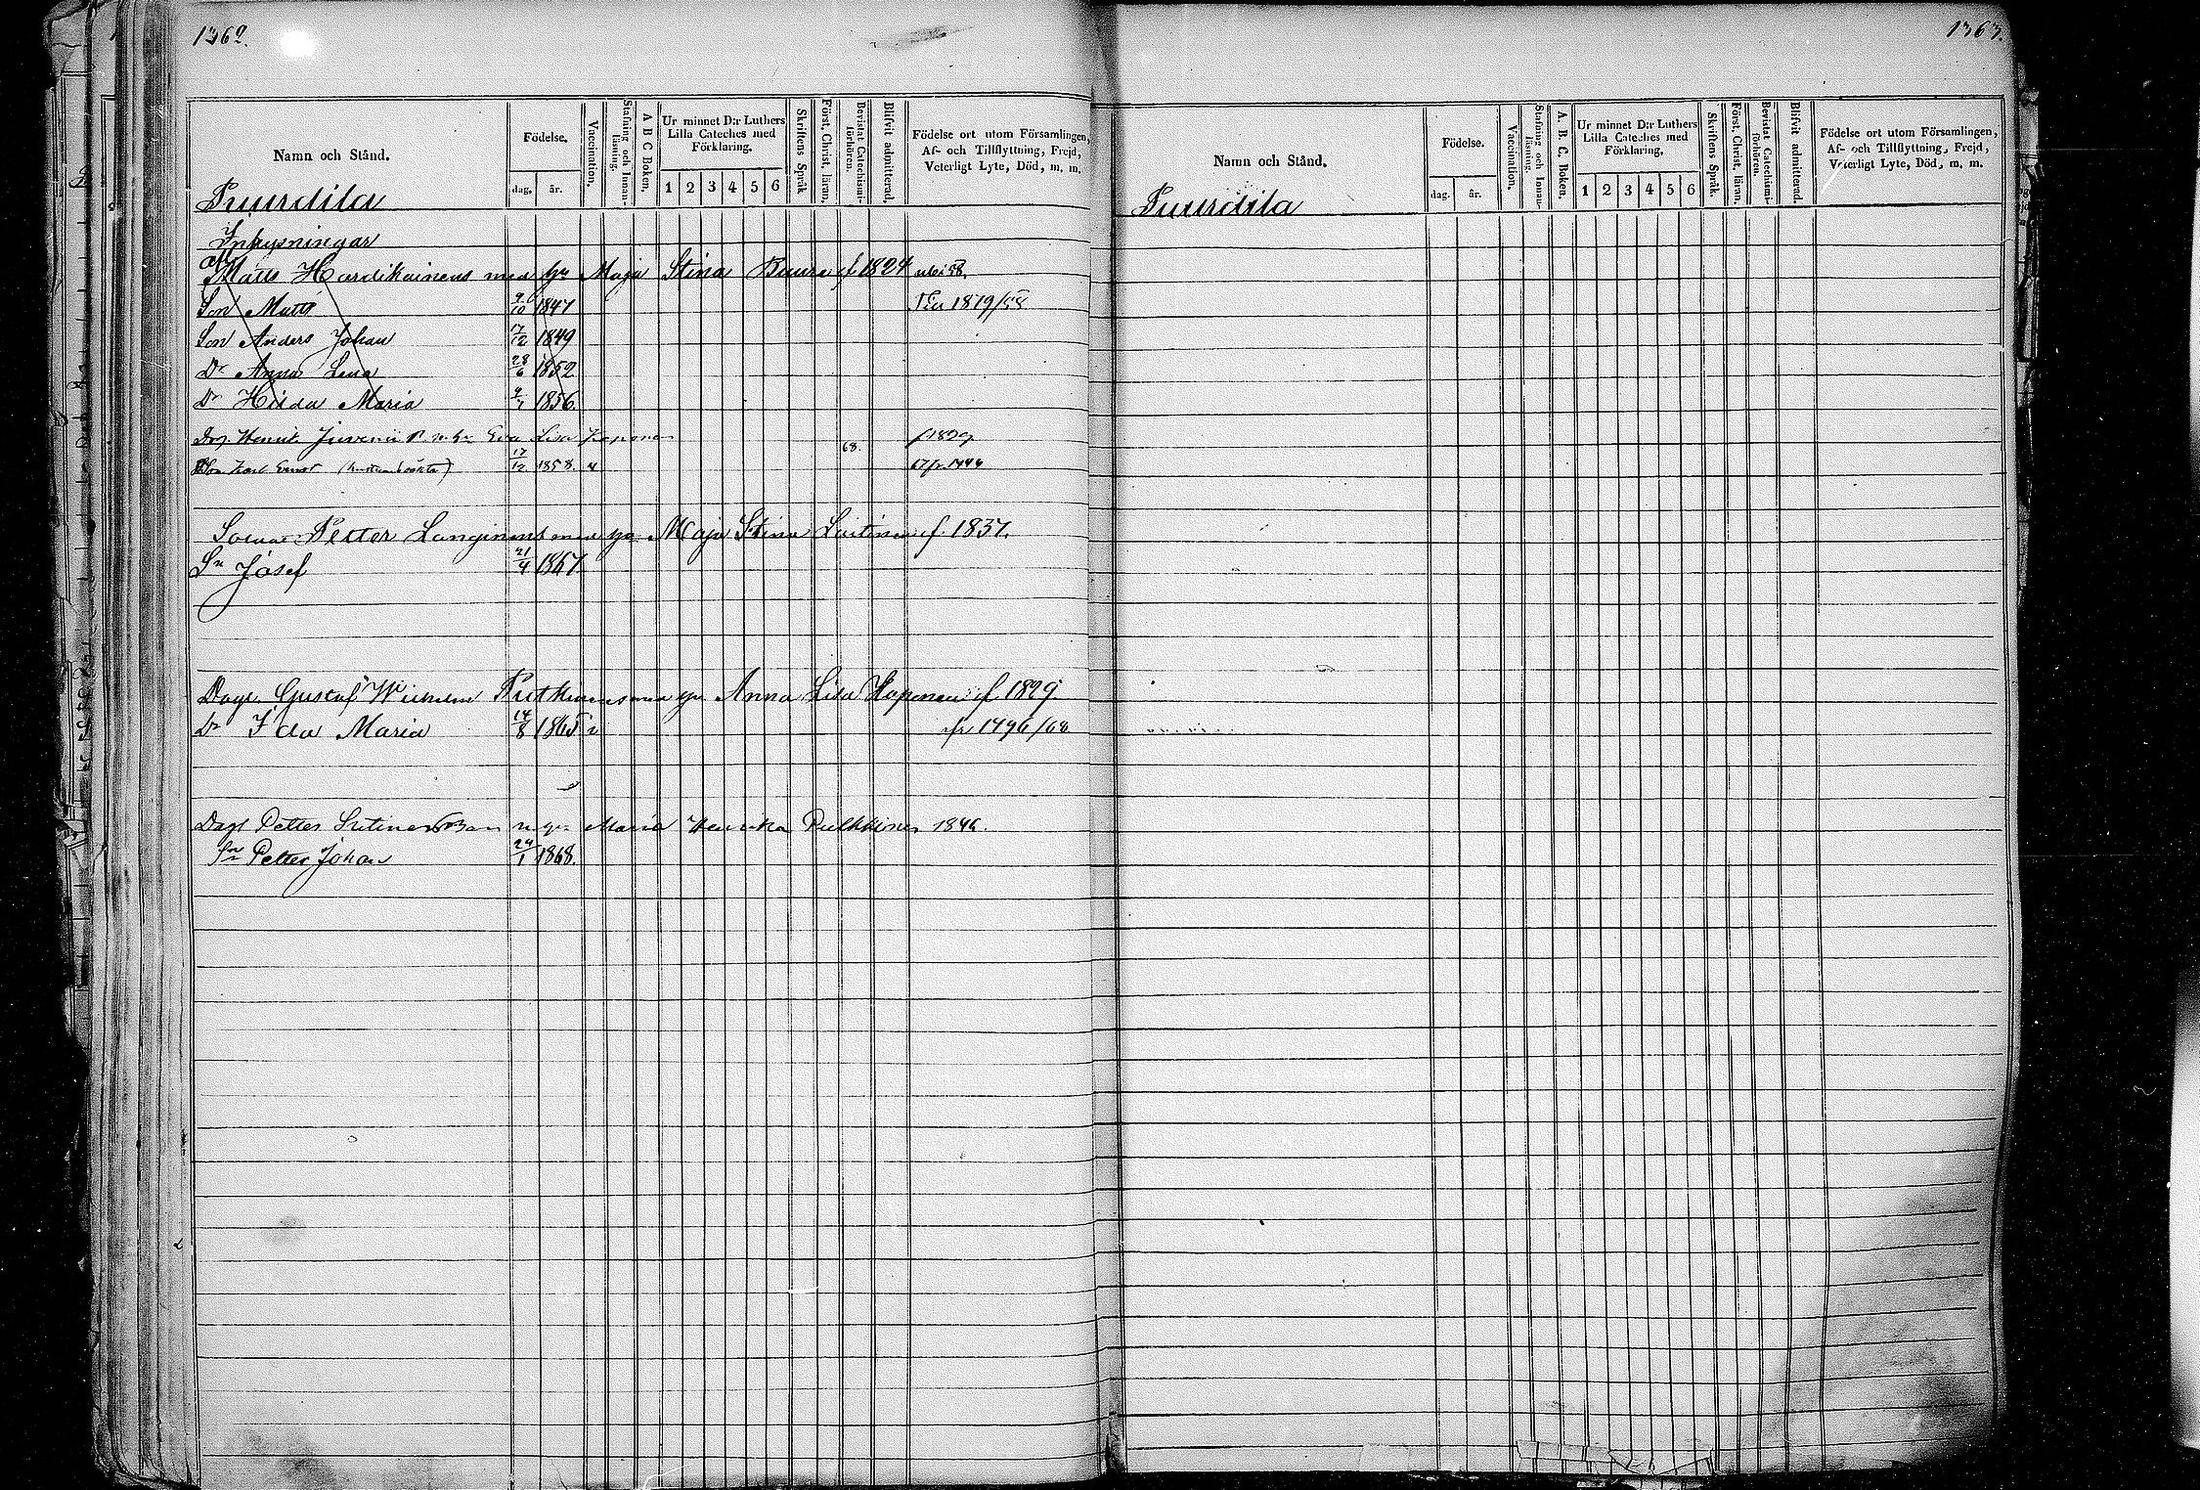 1362.
Namn och Stånd.
Födelse.
dag. år.
Vaccination.
Stafning och Innanläsning.
A B C Boken.
Ur minnet D:r Luthers Lilla Cateches med Förklaring.
1 2 3 4 5 6
Skriftens Språk.
Först. Christ. läran.
Bevistat Catechismiförhören.
Blifvit admitterad.
Födelse ort utom Församlingen,
Af- och Tillflyttning, Frejd,
Veterligt Lyte, Död, m. m.
Puurdila
Inhysningar
Matts Hardikainens med hu Maja Stina Buure f 1824
Son Matts 9/10 1847
Son Anders Johan 17/12 1849
Dr Anna Lena 28/6 1852
Dr Hilda Maria 1856.
Henrik Eva Lisa f 1829
Karl Ernst 17/12 1858. 68.
Petter Langinens Maja Stina f. 1837.
Sn Josef 21/4 1867
Dagk. Gustaf Wilhelm Putkinens med hu Anna Lisa Haponen f. 1829.
Dr Ida Maria 14/8 1865 v ifr 1496/68
Dagk Petter Sutinen Maria Henrika Pulkkinen 1846.
Sn Petter Johan 24/1 1868.
1363.
Namn och Stånd.
Födelse.
dag. år.
Vaccination.
Stafning och Innanläsning.
A. B. C. Boken.
Ur minnet D:r Luthers Lilla Cateches med Förklaring.
1 2 3 4 5 6
Skriftens Språk.
Först. Christ. läran.
Bevistat Catechismiförhören.
Blifvit admitterad.
Födelse ort utom Församlingen,
Af- och Tillflyttning, Frejd,
Veterligt Lyte, Död, m. m.
Puurdila